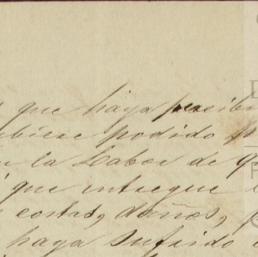 que haya percibi
ubiese podido p
la Labor de q
que entregue
costas, daños, p
haya sufrido